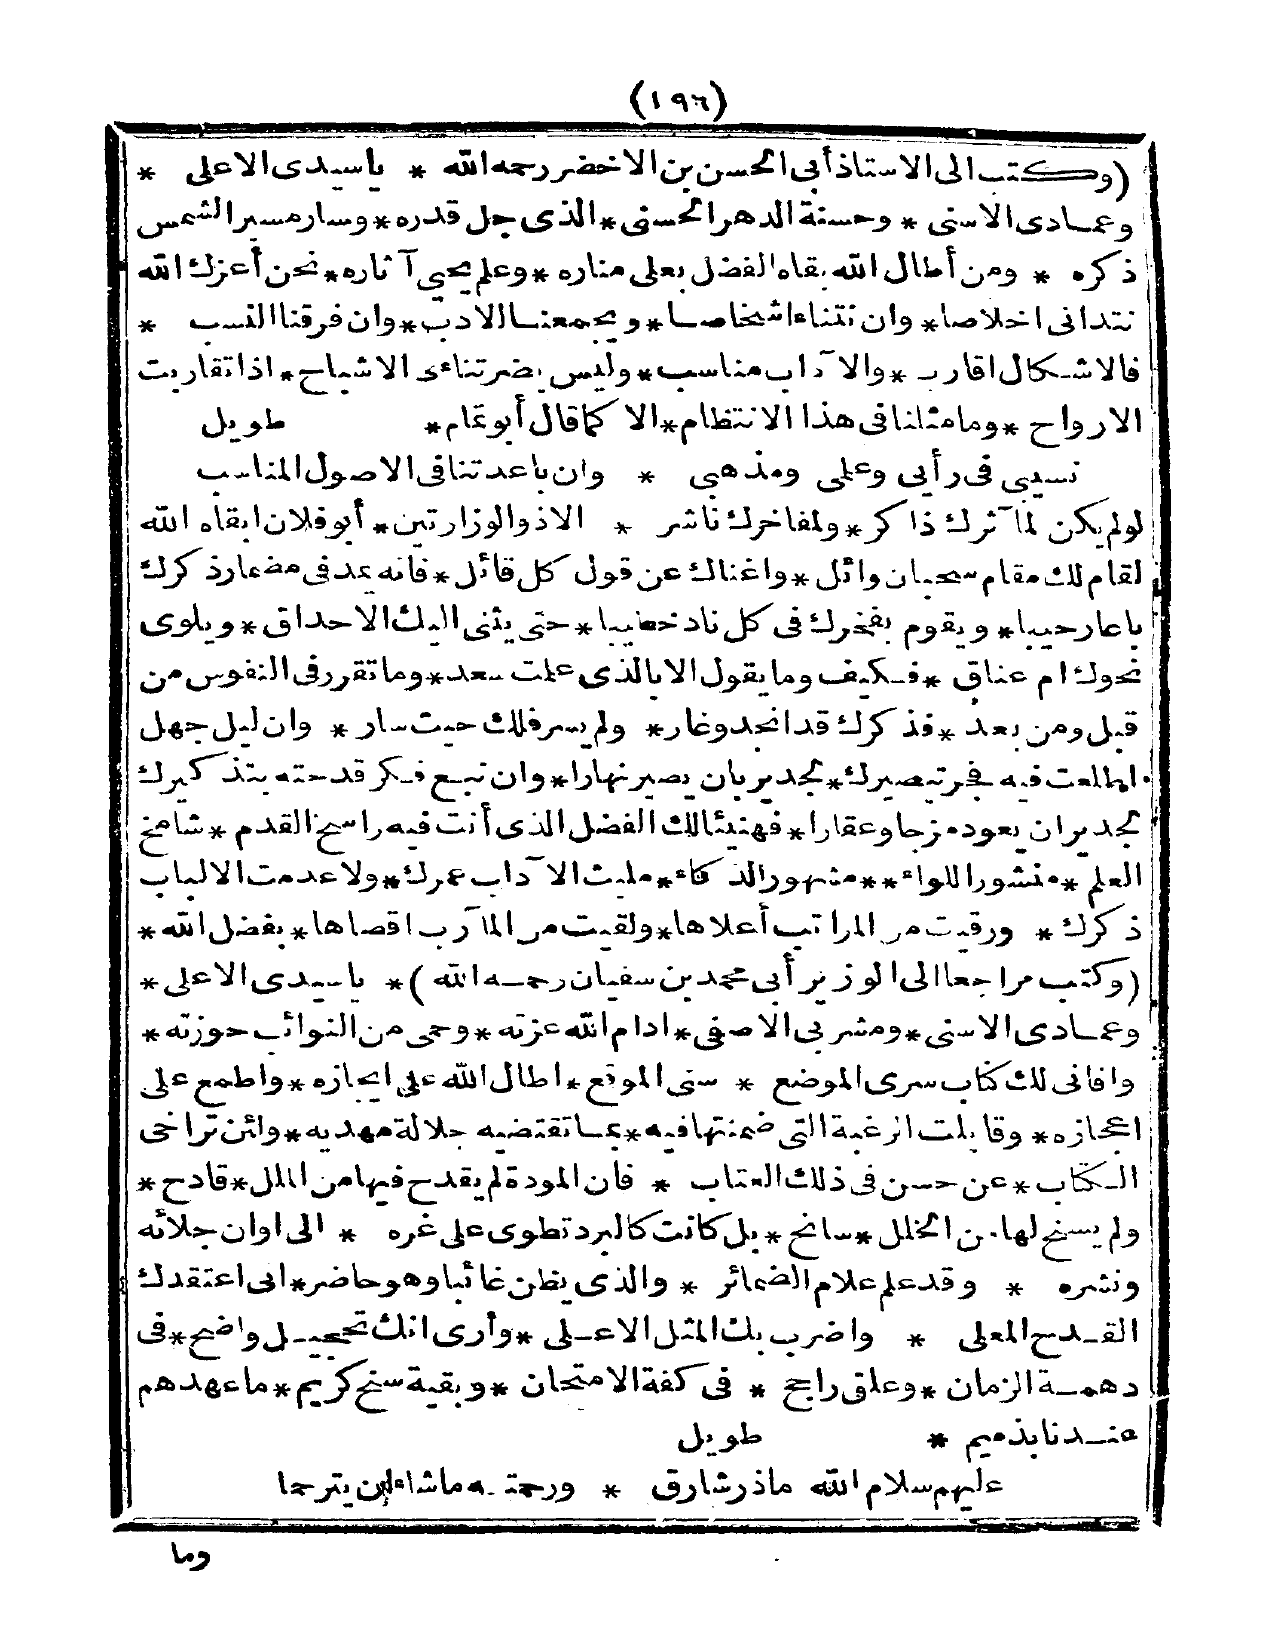 (١٩٦)
(وكتب الى الاستاذ أبى الحسن بن الاخضر رحمه الله * ياسيدى الاعلى *
وعمادى الاسنى * وحسنة الدهر الحسنى * الذى جل قدره * وسار مسير الشمس
ذكره * ومن أطال الله بقاه لفضل يعلى مناره * وعلم يحيى آثاره * نحن أعزك الله
نتدانى اخلاصا * وان نتناءاشخاصا * ويجمعنا الادب * وان فرقنا النسب *
فالاشكال اقارب * والآداب مناسب * وليس يضر تناءى الاشباح * اذا تقاربت
الارواح * وما مثلنا فى هذا الانتظام * الا كما قال أبو تمام * طويل
نسيبى فى رأيى وعلمى ومذهبى * وان باعدتنا فى الاصول المناسب
لو لم يكن لمآثرك ذاكر * ولمفاخرك ناشر * الا ذو الوزارتين * أبو فلان ابقاه الله
لقام لك مقام سحبان وائل * واغناك عن قول كل قائل * فانه يمد فى مضمار ذكرك
باعا رحيبا * ويقوم بفخرك فى كل ناد خطيبا * حتى يثنى اليك الاحداق * ويلوى
نحوك ام عناق * فكيف وما يقول الا بالذى علمت سعد * وما تقرر فى النفوس من
قبل ومن بعد * فذكرك قد انجد وغار * ولم يسر فلك حيث سار * وان ليل جهل
اطلعت فيه فجر تبصيرك * لجدير بان يصير نهارا * وان نبع فكر قدحته بتذكيرك
لجدير ان يعود مرخا وعفارا * فهنيئا لك الفضل الذى أنت فيه راسخ القدم * شامخ
العلم * منشور اللواء * * مشهور الذكاء * مليت الآداب عمرك * ولا عدمت الالباب
ذكرك * ورقيت من المراتب أعلاها * ولقيت من المآرب اقصاها * بفضل الله *
(وكتب مراجعا الى الوزير أبى محمد بن سفيان رحمه الله) * ياسيدى الاعلى *
وعمادى الاسنى * ومشربى الاصفى * ادام الله عزته * وحمى من النوائب حوزته *
وافانى لك كتاب سرى الموضع * سنى الموقع * اطال الله على ايجازه * واطمع على
اعجازه * وقابلت الرغبة التى ضمنتها فيه * بما تقتضيه جلالة مهديه * ولئن تراخى
الكتاب * عن حسن فى ذلك العتاب * فان المودة لم يقدح فيها من الملل * قادح *
ولم يسنح لها من الخلل * سانح * بل كانت كالبرد تطوى على غره * الى اوان جلائه
ونشره * وقد علم علام الضمائر * والذى يظن غائبا وهو حاضر * انى اعتقدك
القدح المعلى * واضرب بك المثل الاعلى * وأرى انك تحجيل واضح * فى
دهمة الزمان * وعلق راجح * فى كفة الامتحان * وبقية سنخ كريم * ما عهدهم
عندنا بذميم * طويل
عليهم سلام الله ماذر شارق * ورحمته ماشاء ان يترحما
وما